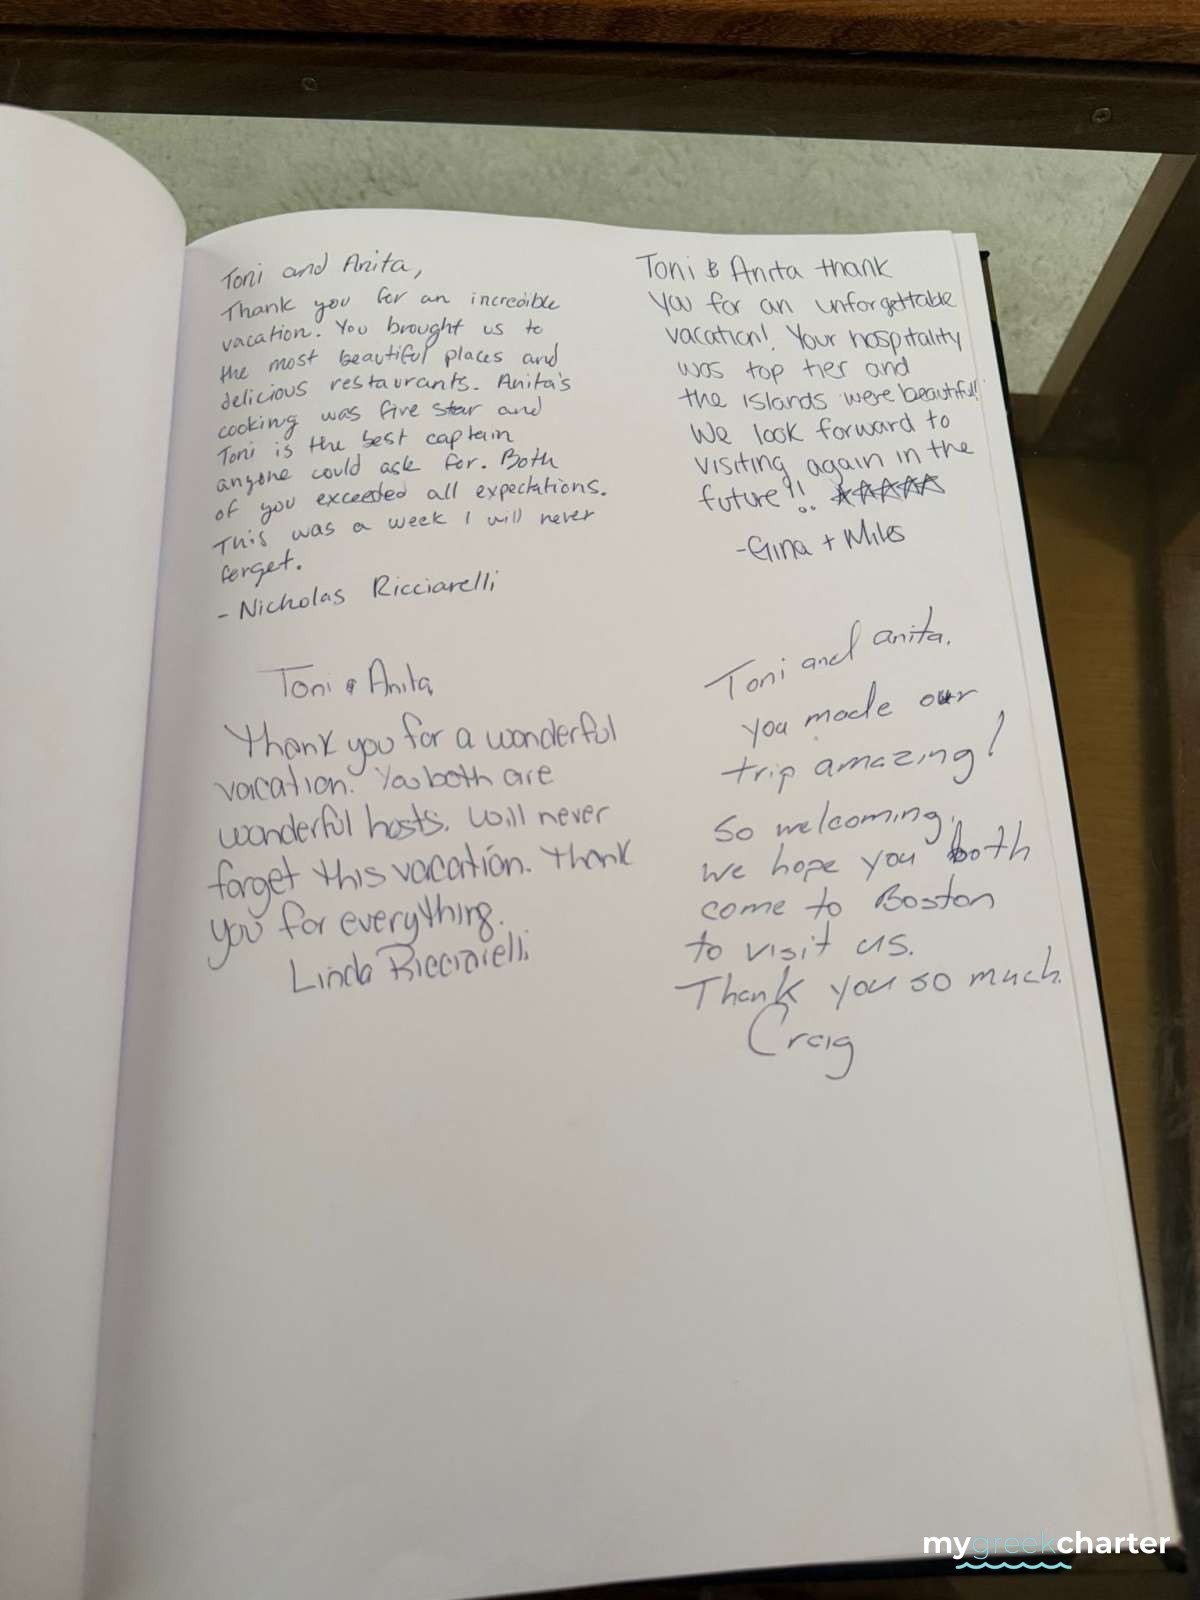 Toni and Anita,
Thank you for an incredible
vacation. You brought us to
the most beautiful places and
delicious restaurants. Anita's
cooking was five star and
Toni is the best captain
anyone could ask for. Both
of you exceeded all expectations.
This was a week I will never
forget.
- Nicholas Ricciarelli
Toni & Anita thank
you for an unforgettable
vacation! Your hospitality
was top tier and
the islands were beautiful!
We look forward to
visiting again in the
future!! ☆☆☆☆☆
-Gina + Miles
Toni & Anita,
Thank you for a wonderful
vacation. You both are
wonderful hosts. Will never
forget this vacation. Thank
you for everything.
Linda Ricciarelli
Toni and anita.
you made our
trip amazing!
So welcoming,
we hope you both
come to Boston
to visit us.
Thank you so much.
Craig
mygreekcharter